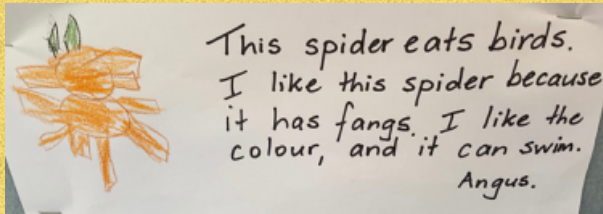 This spider eats birds.
I like this spider because
it has fangs. I like the
colour, and it can swim.
Angus.